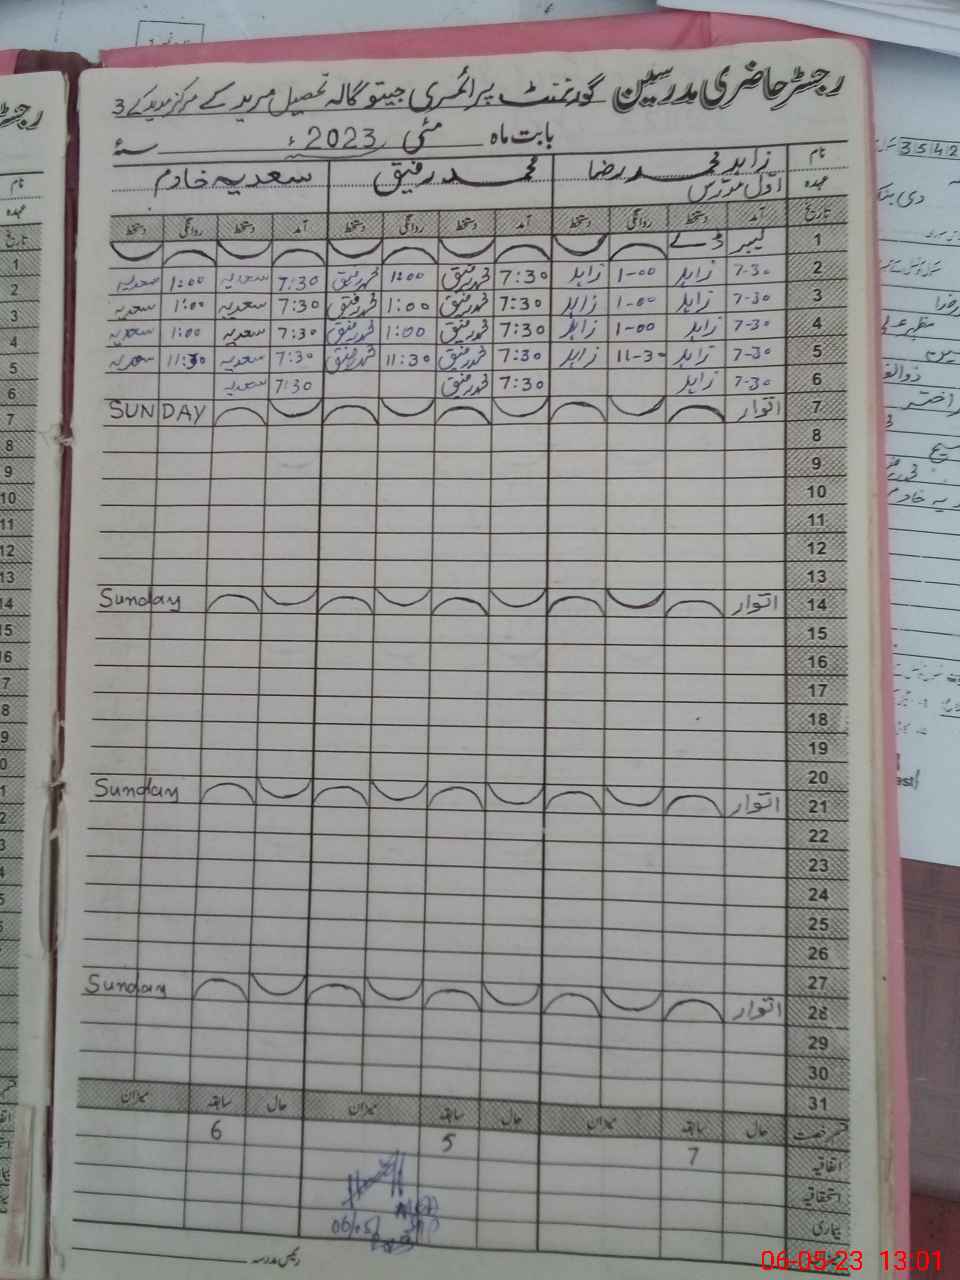 رجسٹر حاضری مدرسین گورنمنٹ پرائمری جیتو گالہ تحصیل مریدکے مرکز مریدکے 3
بابت ماہ مئی 2023ء سنہء
نام زاہد محمد رضا محمد رفیق سعدیہ خادم
عہدہ اوّل مدرس
تاریخ آمد دستخط روانگی دستخط آمد دستخط روانگی دستخط آمد دستخط روانگی دستخط
1 لیبر ڈے
2 7-30 زاہد 1-00 زاہد 7:30 محمد رفیق 1:00 محمد رفیق 7:30 سعدیہ 1:00 سعدیہ
3 7-30 زاہد 1-00 زاہد 7:30 محمد رفیق 1:00 محمد رفیق 7:30 سعدیہ 1:00 سعدیہ
4 7-30 زاہد 1-00 زاہد 7:30 محمد رفیق 1:00 محمد رفیق 7:30 سعدیہ 1:00 سعدیہ
5 7-30 زاہد 11-30 زاہد 7:30 محمد رفیق 11:30 محمد رفیق 7:30 سعدیہ 11:30 سعدیہ
6 7-30 زاہد 7:30 محمد رفیق 7:30 سعدیہ
7 اتوار SUNDAY
8
9
10
11
12
13
14 اتوار Sunday
15
16
17
18
19
20
21 اتوار Sunday
22
23
24
25
26
27
28 اتوار Sunday
29
30
31
قسم رخصت حال سابقہ میزان حال سابقہ میزان حال سابقہ میزان
اتفاقیہ 7 5 6
استحقاقیہ
بیماری
06/05/
رئیس مدرسہ
06-05-23 13:01